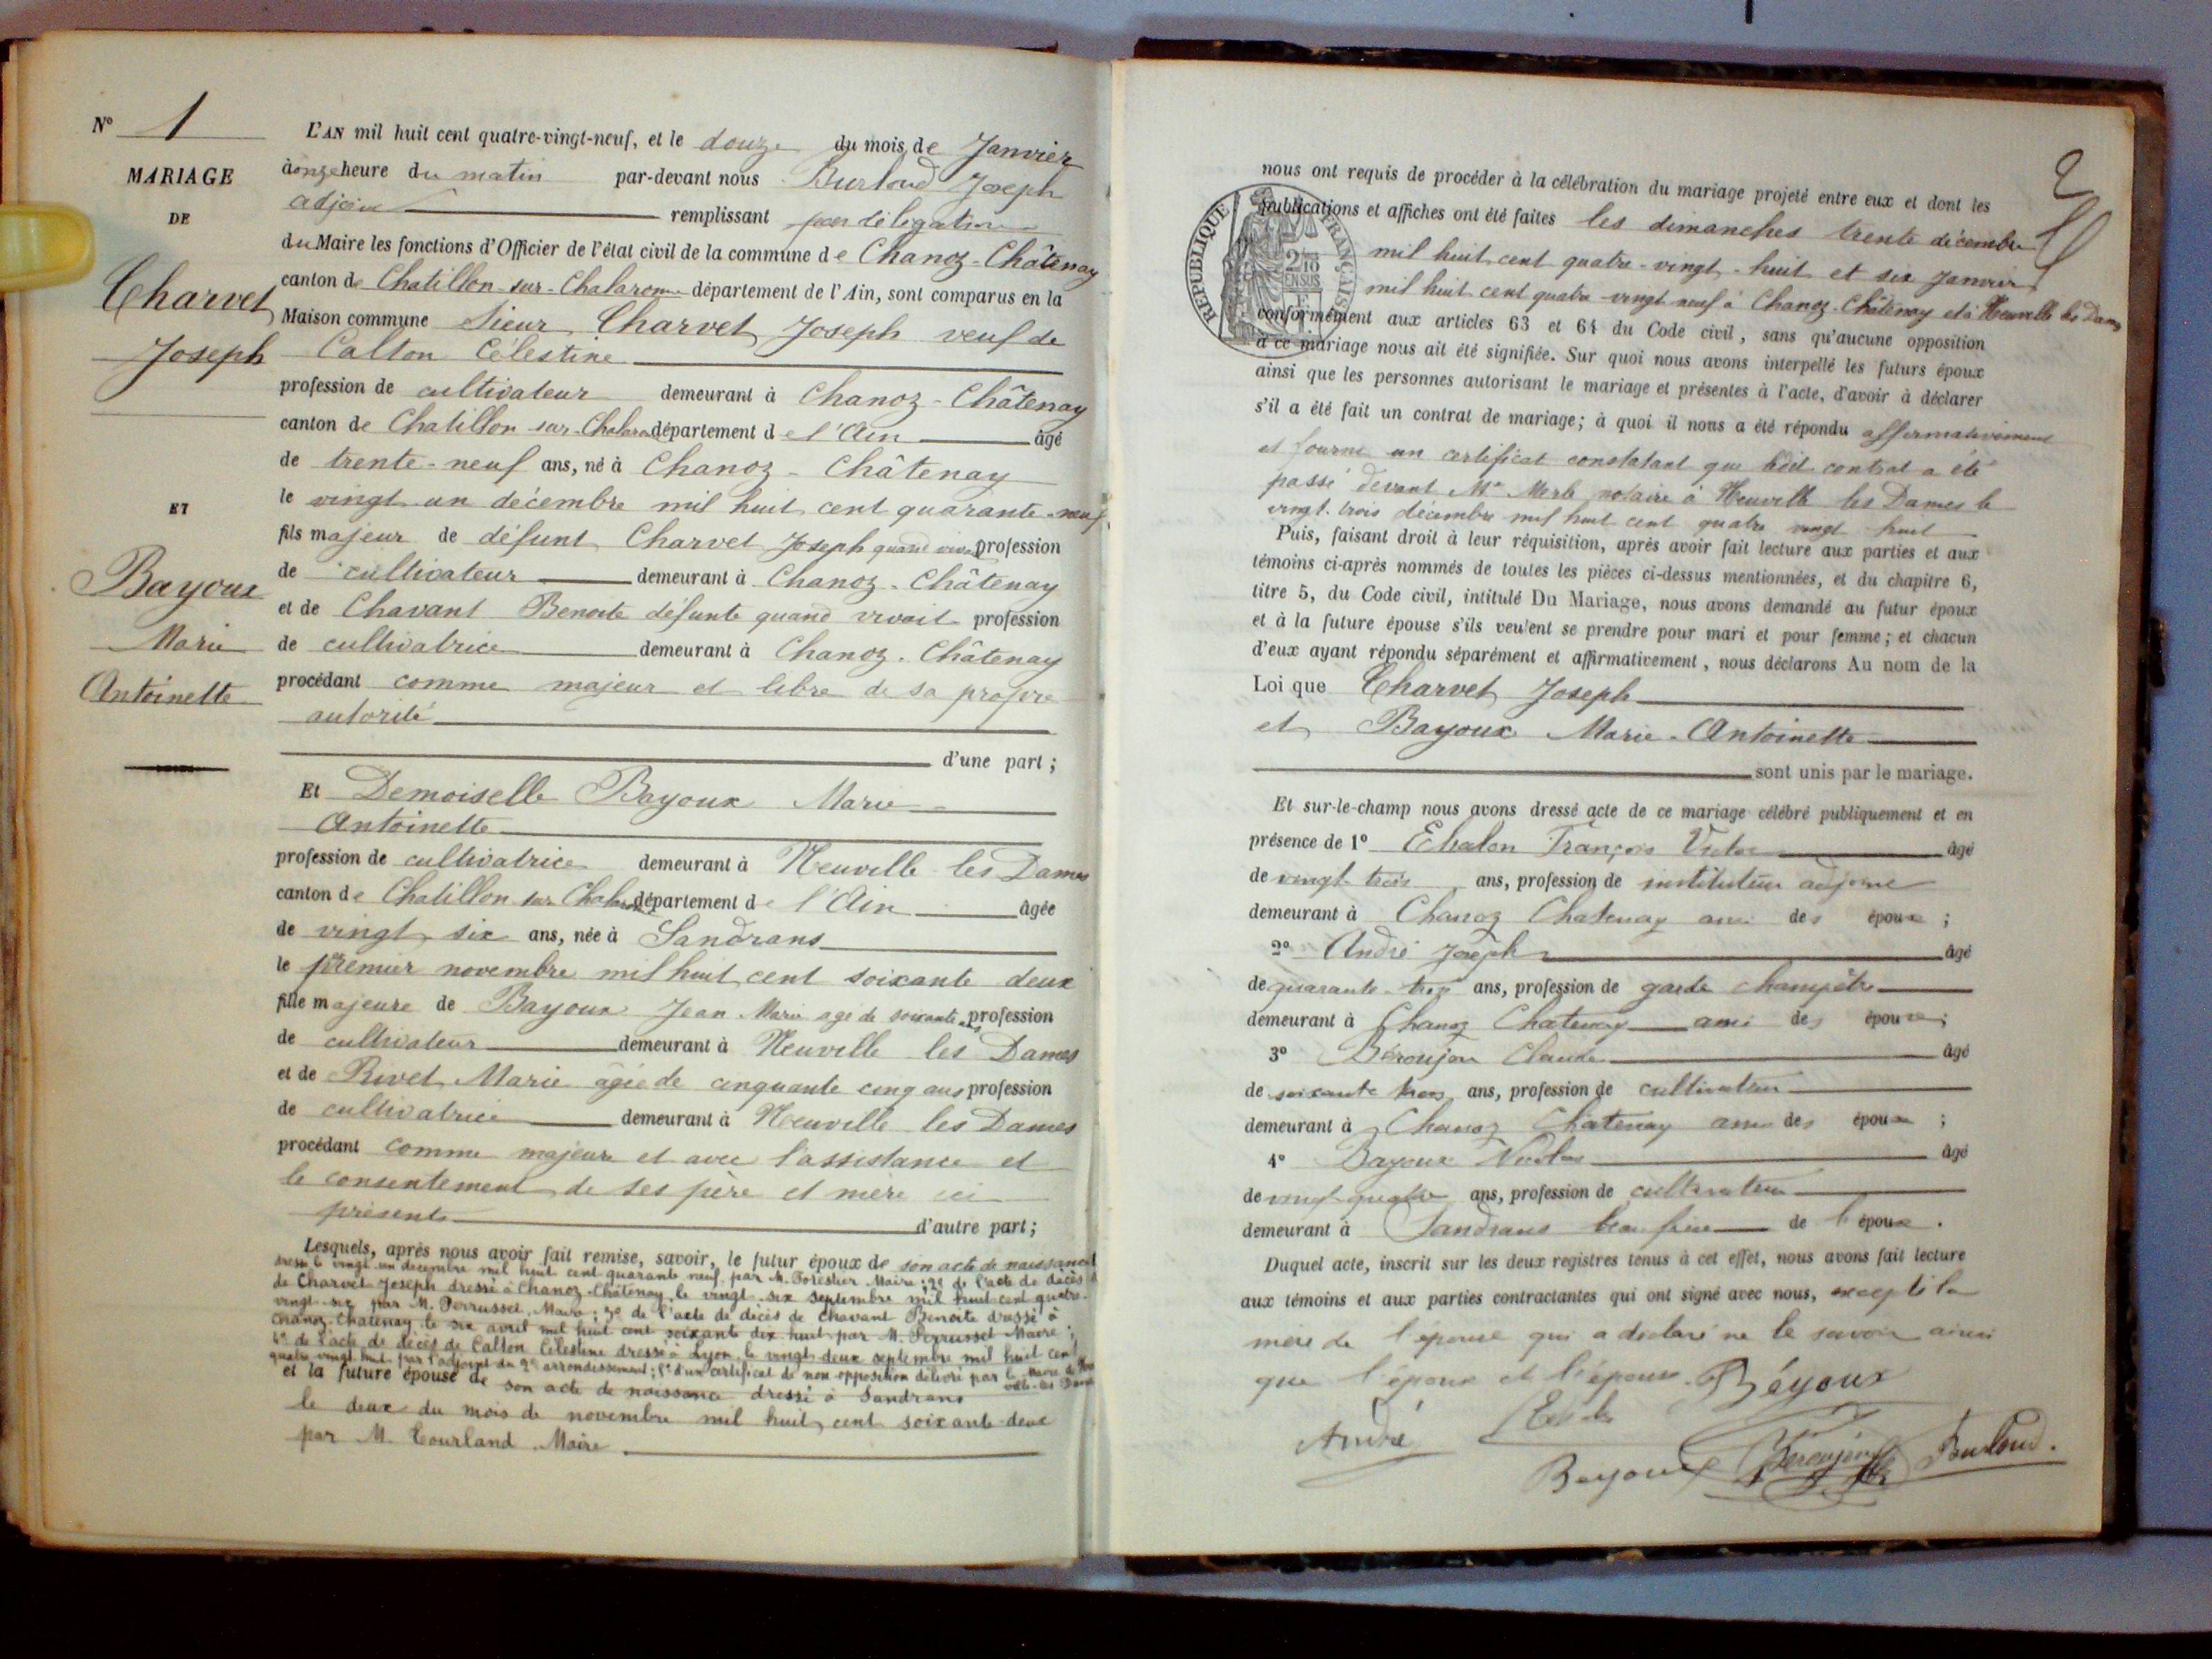 N° 1
MARIAGE
DE
Charvet
Joseph
ET
Bayoux
Marie
Antoinette
L'AN mil huit cent quatre-vingt-neuf, et le douze du mois de Janvier
à onze heure du matin par-devant nous Burloud Joseph
adjoint remplissant par délégation
du Maire les fonctions d'Officier de l'état civil de la commune de Chanoz-Châtenay
canton de Chatillon-sur-Chalaronne département de l'Ain, sont comparus en la
Maison commune Sieur Charvet Joseph veuf de
Calton Célestine
profession de cultivateur demeurant à Chanoz-Châtenay
canton de Chatillon sur Chalaronne département de l'Ain âgé
de trente-neuf ans, né à Chanoz-Châtenay
le vingt un décembre mil huit cent quarante-neuf
fils majeur de défunt Charvet Joseph quand vivait profession
de cultivateur demeurant à Chanoz-Châtenay
et de Chavant Benoite défunte quand vivait profession
de cultivatrice demeurant à Chanoz-Châtenay
procédant comme majeur et libre de sa propre
autorité
d'une part ;
Et Demoiselle Bayoux Marie
Antoinette
profession de cultivatrice demeurant à Neuville les Dames
canton de Chatillon sur Chalaronne département de l'Ain âgée
de vingt six ans, née à Sandrans
le premier novembre mil huit cent soixante deux
fille majeure de Bayoux Jean Marie age de soixante ans profession
de cultivateur demeurant à Neuville les Dames
et de Rivet Marie âgée de cinquante cinq ans profession
de cultivatrice demeurant à Neuville les Dames
procédant comme majeure et avec l'assistance et
le consentement de ses père et mère ici
présents d'autre part ;
Lesquels, après nous avoir fait remise, savoir, le futur époux de son acte de naissance
dressé le vingt un décembre mil huit cent quarante neuf par M. Forestier Maire ; 2° de l'acte de décès
de Charvet Joseph dressé à Chanoz-Châtenay le vingt-six septembre mil huit cent quatre-
vingt-six par M. Perrusset Maire ; 3° de l'acte de décès de Chavant Benoite dressé à
Chanoz-Chatenay le six avril mil huit cent soixante dix huit par M. Perrusset Maire ;
4° de l'acte de décès de Calton Célestine dressé à Lyon le vingt-deux septembre mil huit cent
quatre vingt huit par l'adjoint du 2e arrondissement ; 5° d'un certificat de non opposition délivré par le Maire de Neu
ville-les-Dames
et la future épouse de son acte de naissance dressé à Sandrans
le deux du mois de novembre mil huit cent soixante-deux
par M. Courland Maire
2
RÉPUBLIQUE FRANÇAISE
2/10 EN SUS
nous ont requis de procéder à la célébration du mariage projeté entre eux et dont les
publications et affiches ont été faites les dimanches trente décembre
mil huit cent quatre-vingt-huit et six janvier
mil huit cent quatre-vingt neuf à Chanoz-Châtenay et à Neuville les Dames
conformément aux articles 63 et 64 du Code civil, sans qu'aucune opposition
à ce mariage nous ait été signifiée. Sur quoi nous avons interpellé les futurs époux
ainsi que les personnes autorisant le mariage et présentes à l'acte, d'avoir à déclarer
s'il a été fait un contrat de mariage ; à quoi il nous a été répondu affirmativement
et fourni un certificat constatant que ledit contrat a été
passé devant Me Merle notaire à Neuville les Dames le
vingt-trois décembre mil huit cent quatre vingt huit
Puis, faisant droit à leur réquisition, après avoir fait lecture aux parties et aux
témoins ci-après nommés de toutes les pièces ci-dessus mentionnées, et du chapitre 6,
titre 5, du Code civil, intitulé Du Mariage, nous avons demandé au futur époux
et à la future épouse s'ils veulent se prendre pour mari et pour femme ; et chacun
d'eux ayant répondu séparément et affirmativement, nous déclarons Au nom de la
Loi que Charvet Joseph
et Bayoux Marie-Antoinette
sont unis par le mariage.
Et sur-le-champ nous avons dressé acte de ce mariage célébré publiquement et en
présence de 1° François Victor âgé
de vingt-trois ans, profession de instituteur adjoint
demeurant à Chanoz Chatenay ami des époux ;
2° André Joseph âgé
de quarante-trois ans, profession de garde champêtre
demeurant à Chanoz Chatenay ami des époux ;
3° Béroujon Claude âgé
de soixante trois ans, profession de cultivateur
demeurant à Chanoz Chatenay ami des époux ;
4° Bayoux Nicolas âgé
de vingt-quatre ans, profession de cultivateur
demeurant à Sandrans beau frère de l'époux.
Duquel acte, inscrit sur les deux registres tenus à cet effet, nous avons fait lecture
aux témoins et aux parties contractantes qui ont signé avec nous, excepté la
mère de l'épouse qui a déclaré ne le savoir ainsi
que l'époux et l'épouse. Béyoux
André
Bayoux Béroujon Burloud.